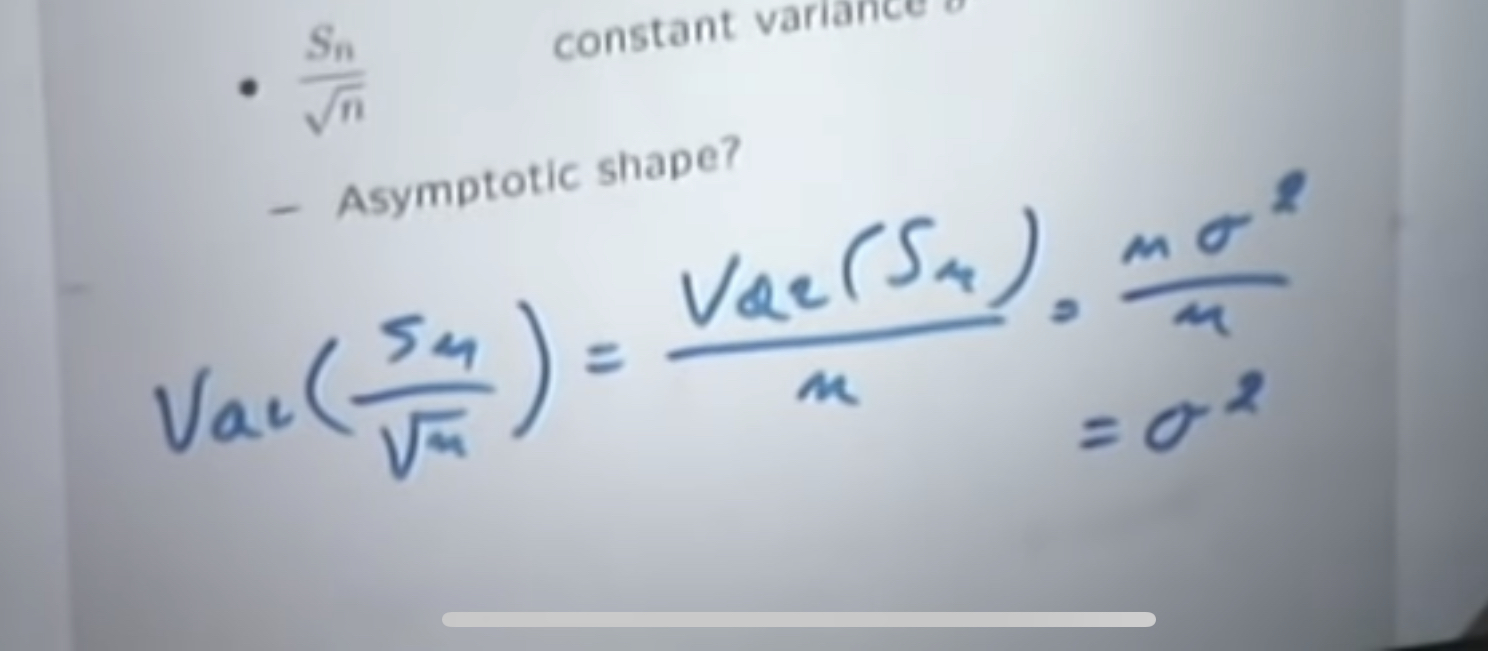 • Sn/√n constant variance σ
– Asymptotic shape?
Var(Sn/√n) = Var(Sn)/n = nσ²/n
= σ²